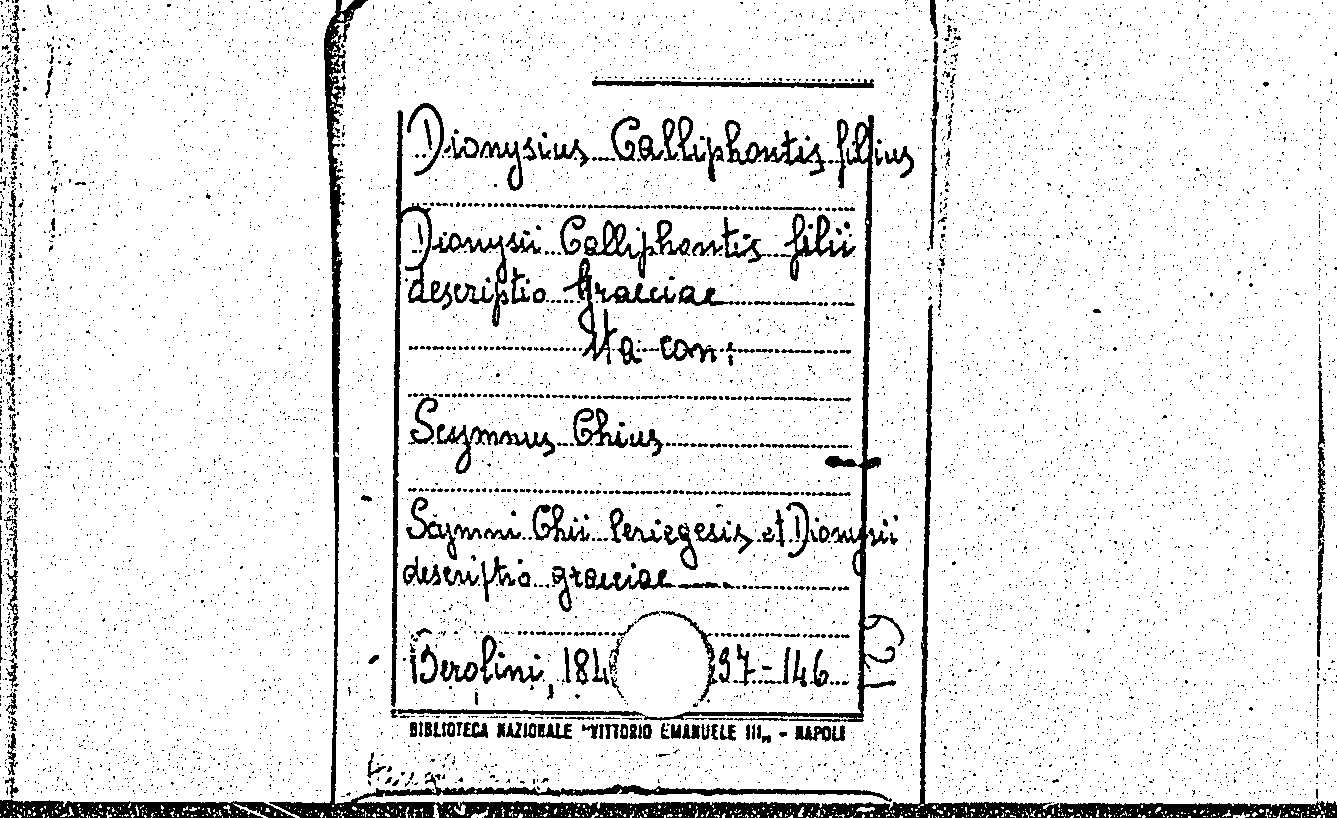 Dionysius Calliphontis filius
Dionysii Calliphontis filii
descriptio Graeciae
Sta con:
Scymnus Chius
Scymni Chii Periegesis et Dionysii
descriptio graeciae
Berolini, 184 137-146
BIBLIOTECA NAZIONALE "VITTORIO EMANUELE III„ - NAPOLI